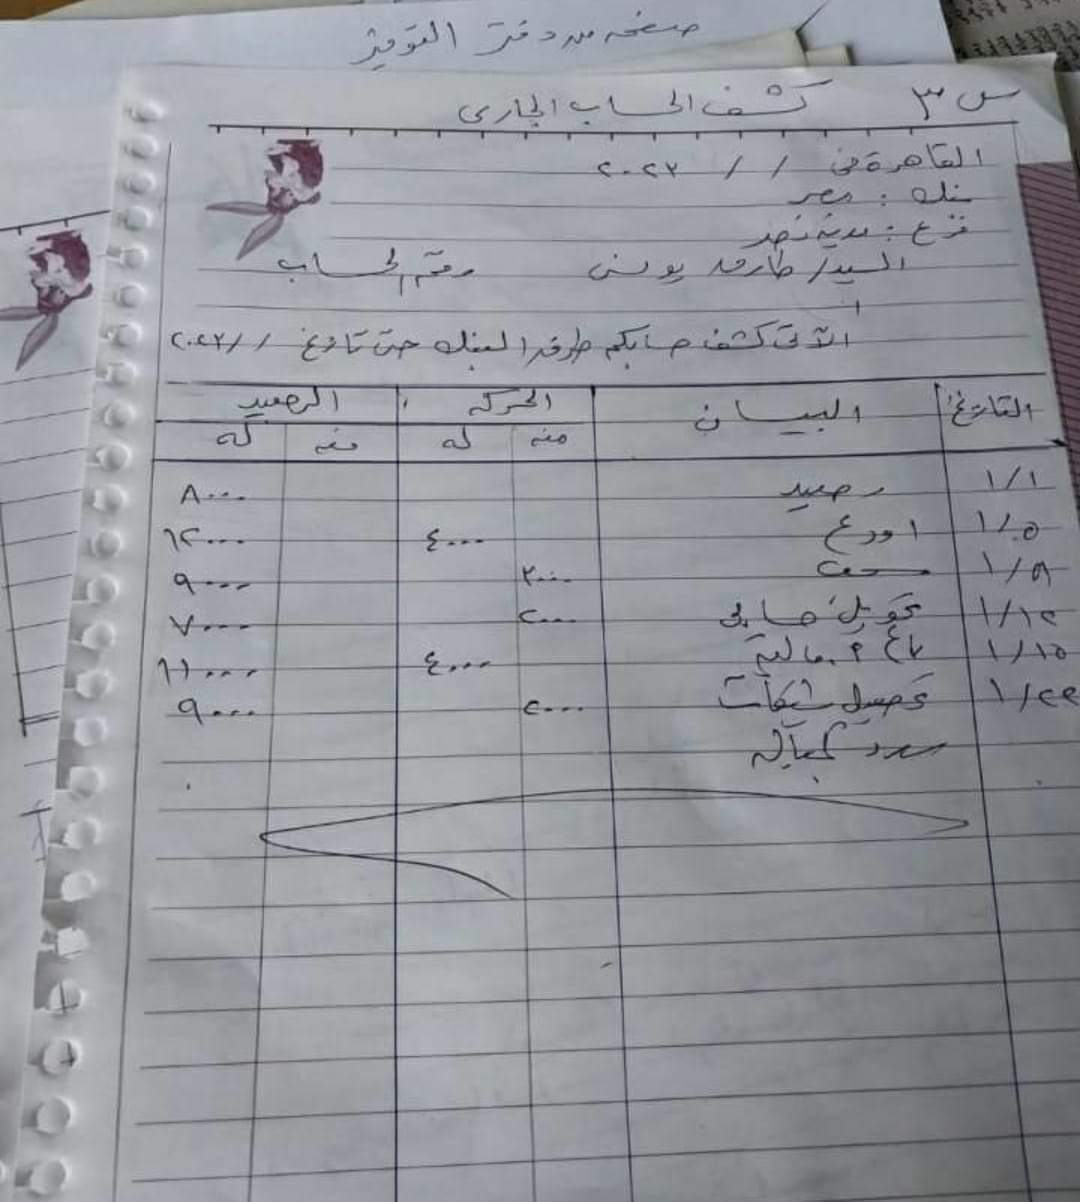 صفحه من دفتر التوفير
س ٣ كشف الحساب الجارى
القاهرة فى / / ٢٠٢٣
بنك : مصر
فرع : مدينة نصر
السيد/ طارق يونس رقم الحساب
الآتى كشف حسابكم طرف البنك حتى تاريخ / / ٢٠٢٣
التاريخ البيــــان الحركه الرصيد
منه له منه له
١/١ رصيد ٨٠٠٠
١/٥ اودع ٤٠٠٠ ١٢٠٠٠
١/٩ سحب ٣٠٠٠ ٩٠٠٠
١/١٢ تحويل حسابى ٢٠٠٠ ٧٠٠٠
١/١٥ باع أ. مالية ٤٠٠٠ ١١٠٠٠
١/٢٢ تحصيل شيكات ٢٠٠٠ ٩٠٠٠
سدد كمبياله